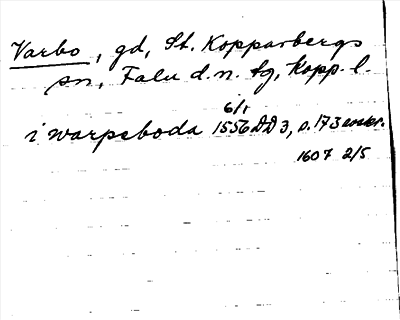 Varbo, gd, St. Kopparbergs
sn, Falu d.n. tg, Kopp. l.
6/1
i warpeboda 1556 DD 3, s. 173 avskr.
1607 2/5